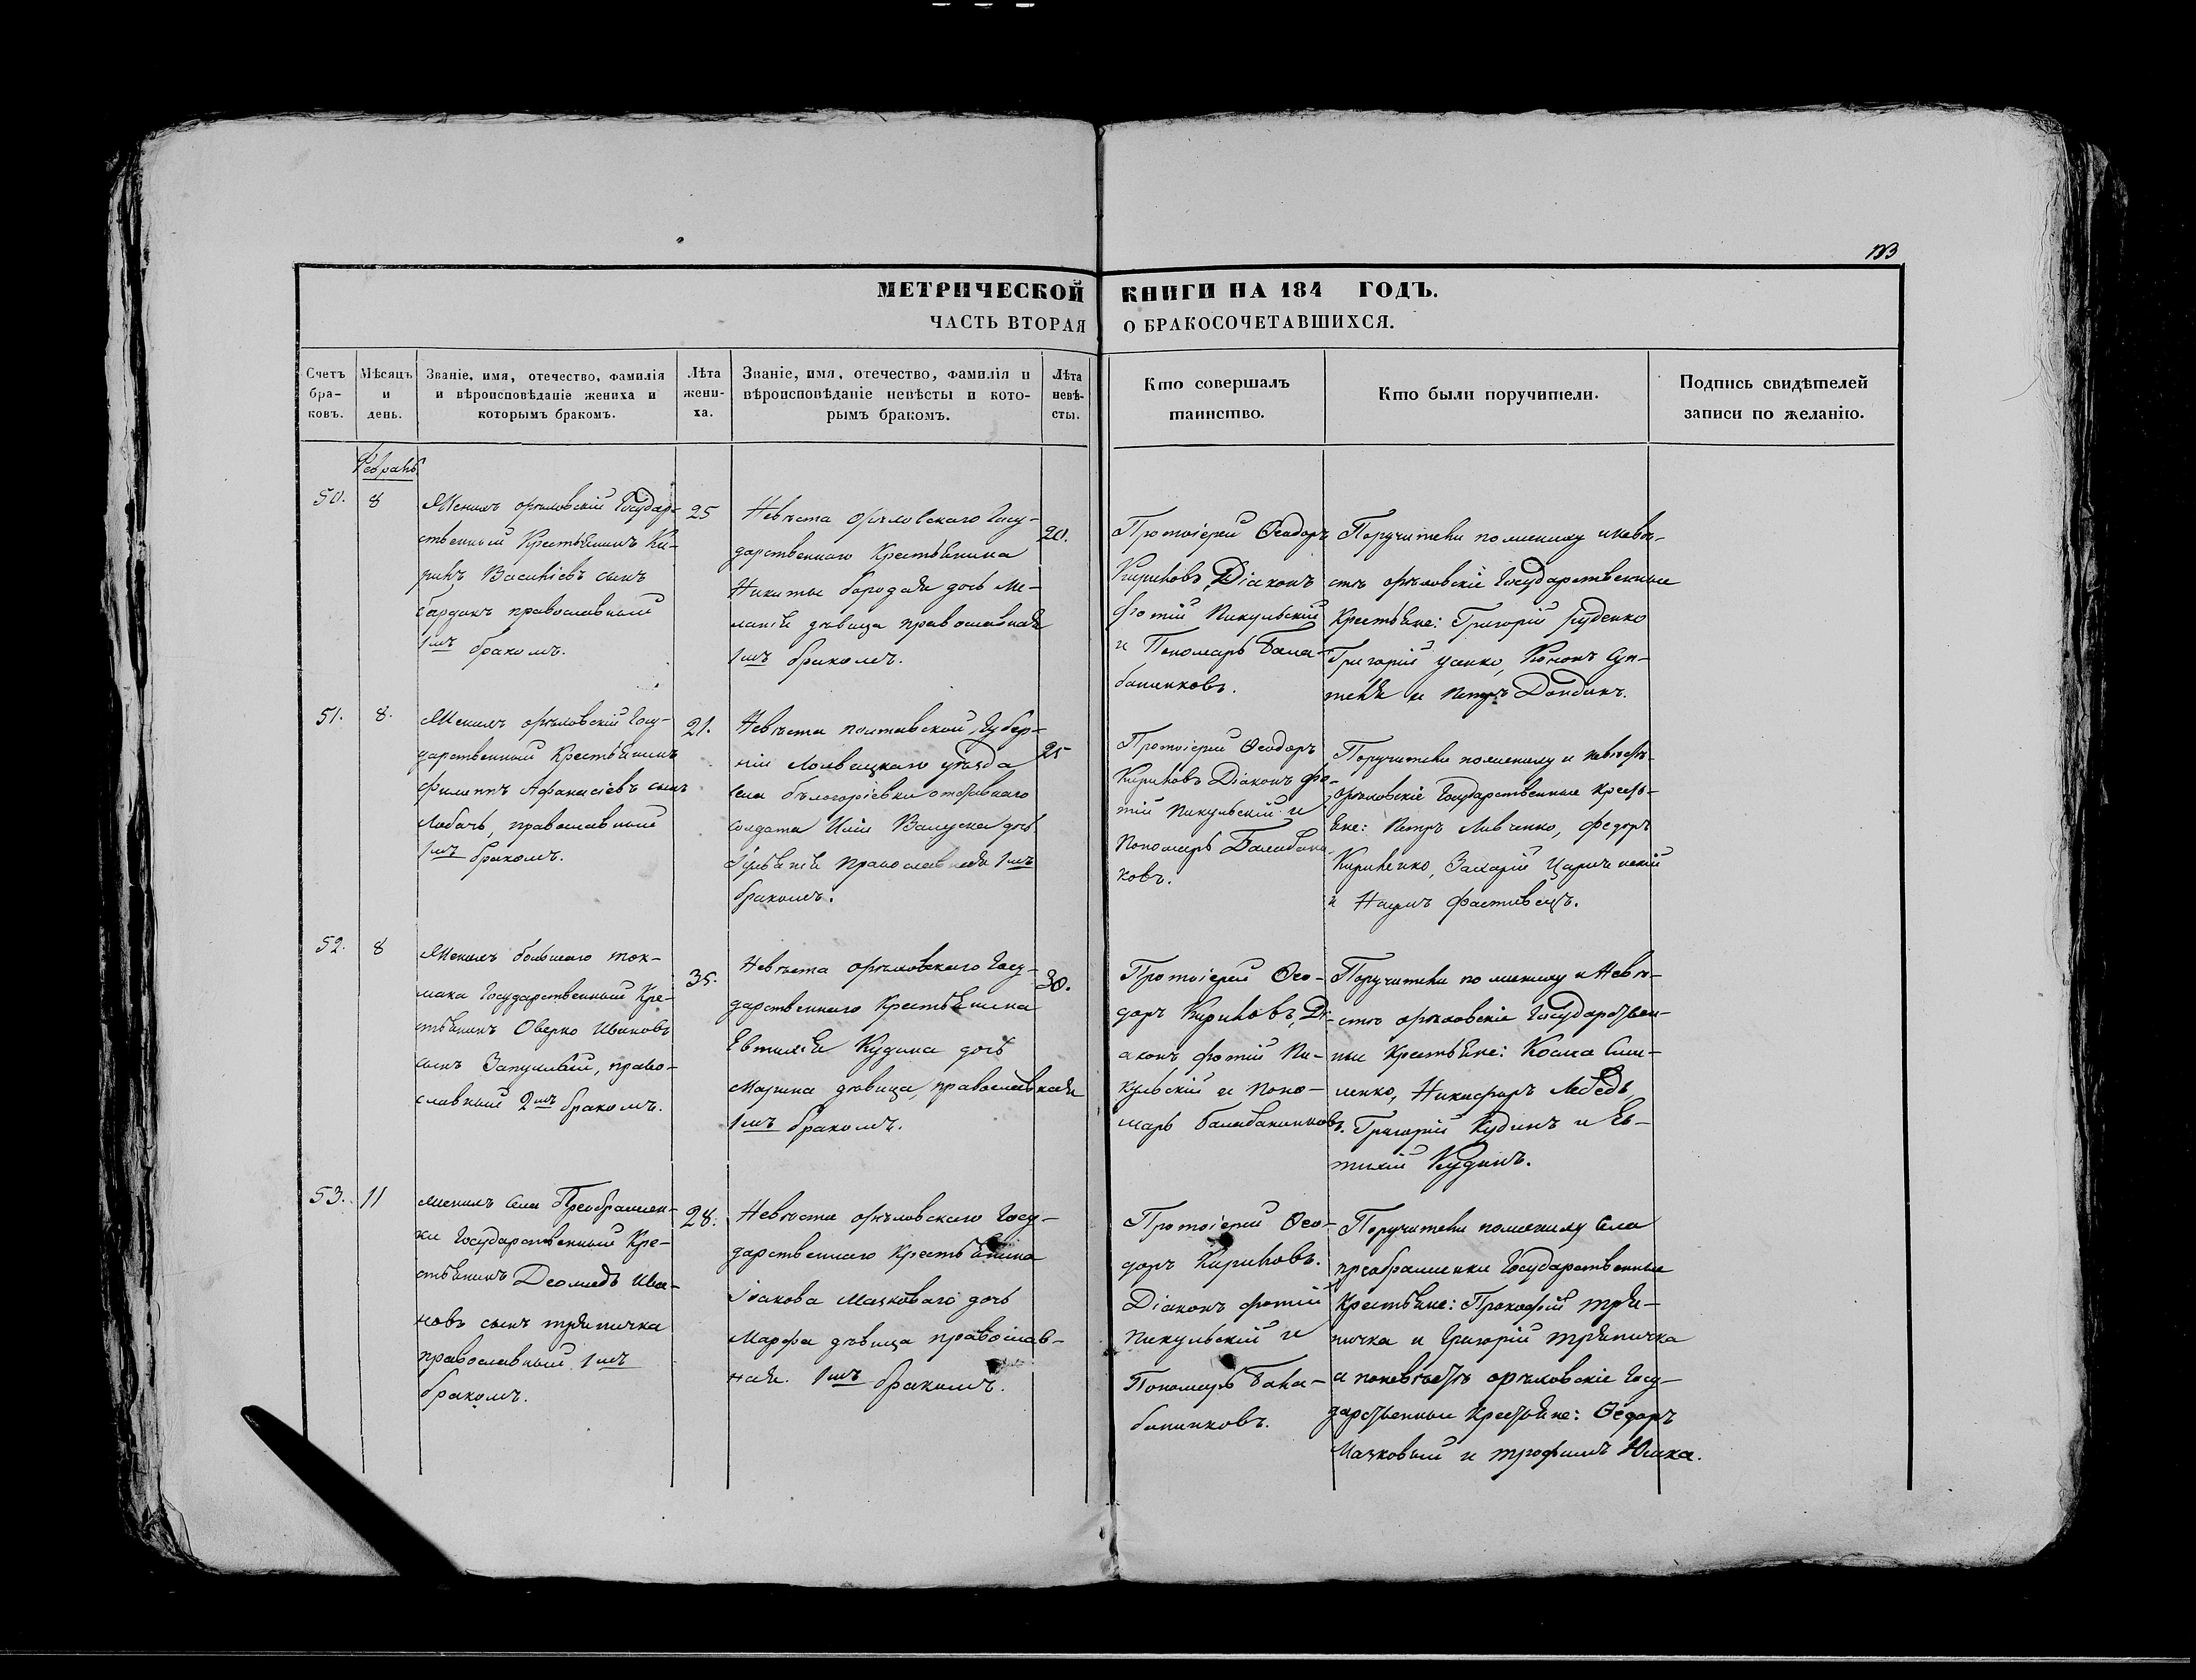 МЕТРИЧЕСКОЙ КНИГИ НА 184 ГОДЪ.
ЧАСТЬ ВТОРАЯ О БРАКОСОЧЕТАВШИХСЯ.
Счетъ бра-ковъ.
Мѣсяцъ и день.
Званіе, имя, отечество, фамилія и вѣроисповѣданіе жениха и которымъ бракомъ.
Лѣта жени-ха.
Званіе, имя, отечество, фамилія и вѣроисповѣданіе невѣсты и кото-рымъ бракомъ.
Лѣта невѣ-сты.
Кто совершалъ таинство.
Кто были поручители.
Подпись свидѣтелей записи по желанію.
Февраль
50.
8
Женихъ орѣховскій Государ-
ственный Крестьянинъ Ки-
рилъ Василіевъ сынъ
православный
1мъ бракомъ.
25
Невѣста орѣховскаго Госу-
дарственнаго Крестьянина
Никиты бородая дочь Ме-
ланія дѣвица православная
1мъ бракомъ.
20.
Протоіерей Ѳеодоръ
Кириловъ, Діаконъ
Фотій Пикульскій
и Пономарь Бала-
банчковъ.
Поручители по жениху и невѣ-
стѣ орѣховскіе Государственные
Крестьяне: Григорій Руденко
Григорій усенко, Кононъ Суп-
и Петръ
51.
8.
Женихъ орѣховскій Госу-
дарственный Крестьянинъ
Филиппъ Афанасіевъ сынъ
Лобачь, православный
1мъ бракомъ.
21.
Невѣста полтавской Губер-
ніи Лохвицкаго уѣзда
села бѣлогоріевки отставнаго
солдата Иліи дочь
православная 1мъ
бракомъ.
25
Протоіерей Ѳеодоръ
Кириловъ Діаконъ Фо-
тій Пикульскій и
Пономарь Балабанч-
ковъ.
Поручители по жениху и невѣстѣ
орѣховскіе Государственные Кресть-
яне: Петръ Левченко, Федоръ
Кириленко, Захарій Царичнскій
и Наумъ Фастивецъ.
52.
8
Женихъ большаго ток-
мака Государственный Кре-
стьянинъ Оверко Ивановъ
сынъ право-
славный 2мъ бракомъ.
35.
Невѣста орѣховскаго Госу-
дарственнаго Крестьянина
Евтихія Кудина дочь
Марина дѣвица, православная
1мъ бракомъ.
30.
Протоіерей Ѳео-
доръ Кириловъ, Ді-
аконъ Фотій Пи-
кульскій и Поно-
марь Балабанчковъ.
Поручители по жениху и Невѣ-
стѣ орѣховскіе Государствен-
ные Крестьяне: Косма Сим-
ненко, Никифоръ Лебедь,
Григорій Кудинъ и Ев-
тихій Кудинъ.
53.
11
Женихъ села Преображен-
ки Государственный Кре-
стьянинъ Деомидъ Ива-
новъ сынъ тряпичка
православный 1мъ
бракомъ.
28.
Невѣста орѣховскаго Госу-
дарственнаго Крестьянина
Іоакова Мачковаго дочь
Марфа дѣвица православ-
ная. 1мъ бракомъ.
Протоіерей Ѳео-
доръ Кириловъ.
Діаконъ Фотій
Пикульскій и
Пономарь Бала-
банчковъ.
Поручители по жениху села
преображенки Государственные
Крестьяне: Прокофій тря-
пичка и Григорій тряпичка
а по невѣстѣ орѣховскіе Госу-
дарственные Крестьяне: Ѳедоръ
Мачковый и трофимъ Юшка.